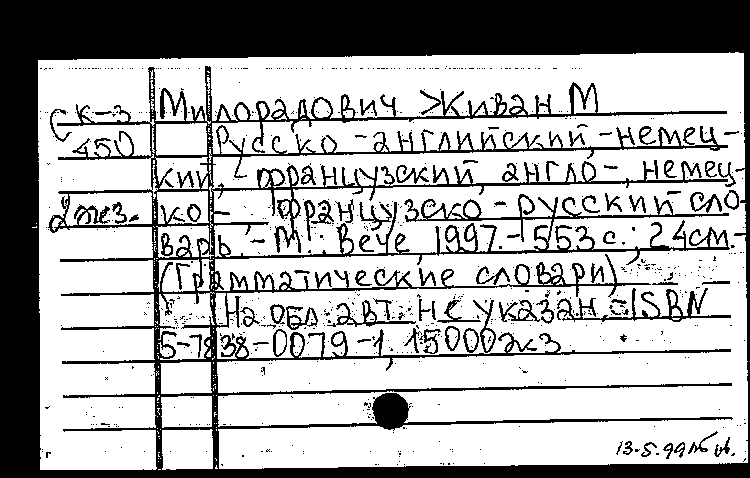 СК-3 Милорадович Живан М
450 Русско-английский,-немец-
кий, -французский, англо-, немец-
2 экз. ко-, французско-русский сло-
варь.-М.: Вече, 1997.-553с.; 24см.-
(Грамматические словари)
На обл. авт. не указан.-ISBN
5-7838-0079-1, 15000экз.
13.5.99